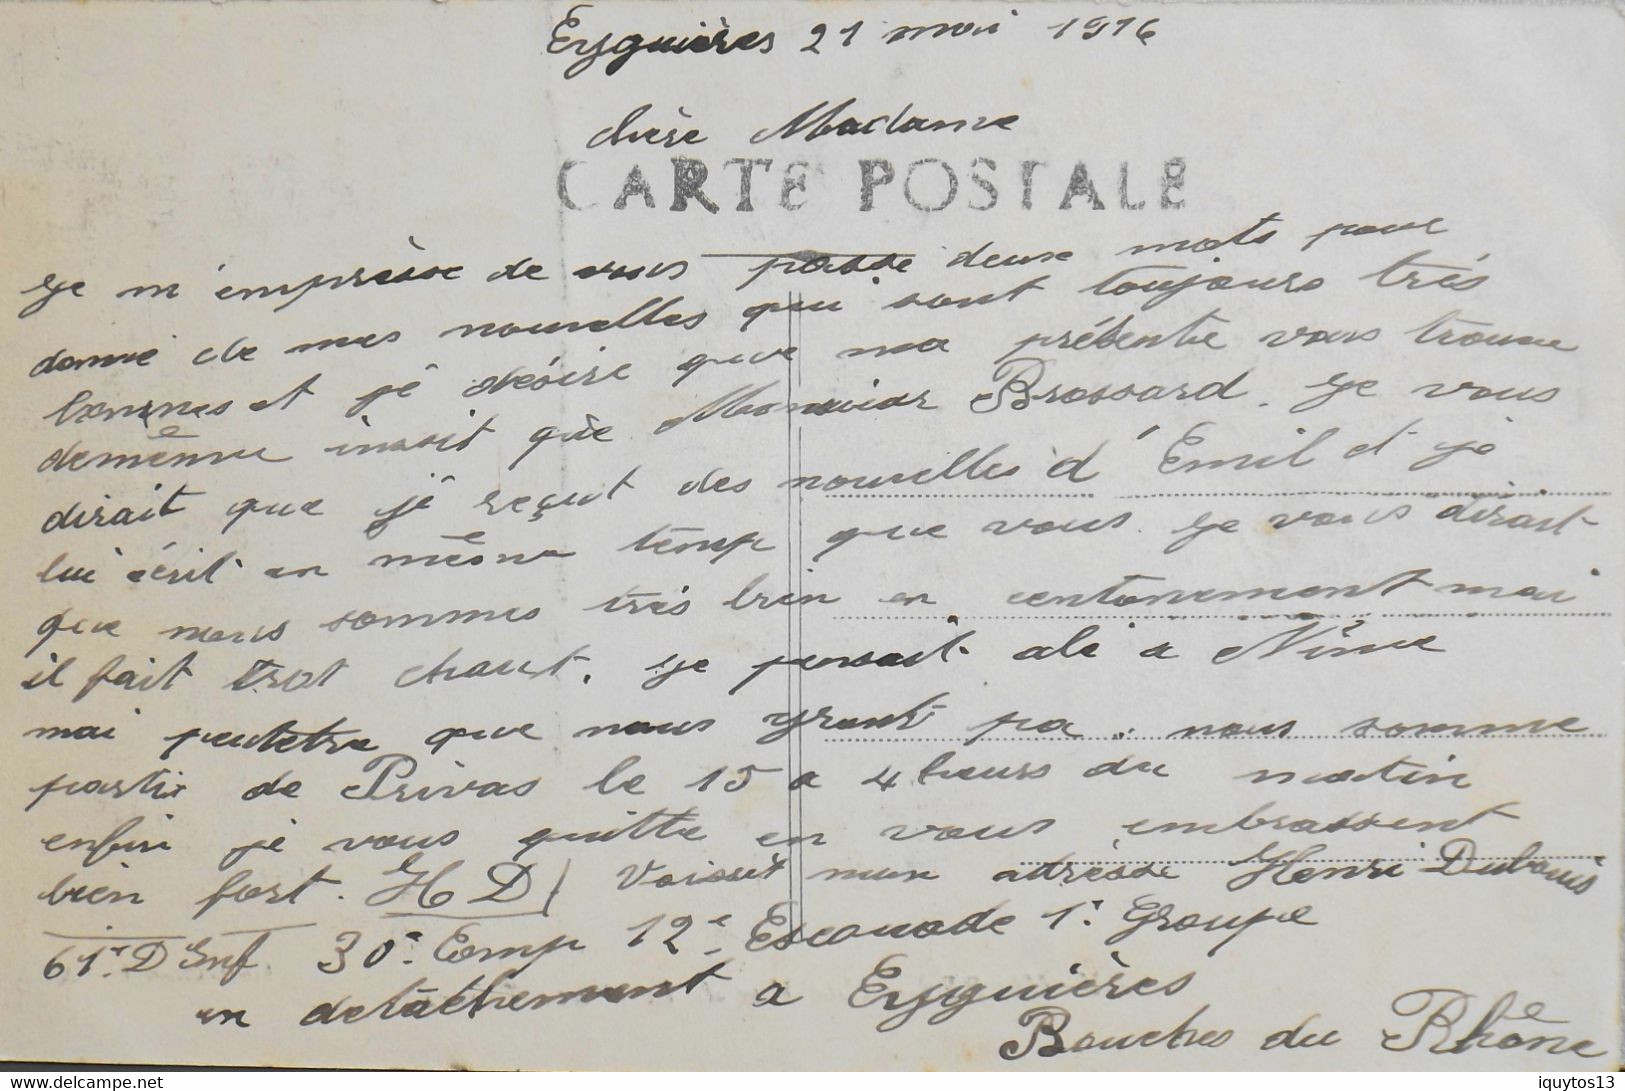 Eyguières 21 mai 1916
chère Madame
CARTE POSTALE
Je m'emprèsse de vous passé deux mots pour
donné de mes nouvelles qui sont toujours très
bonnes et jé désire que ma présente vous trouve
demême insit que Monsieur Brossard. Je vous
dirait que jé reçut des nouvelles d'Emil et jé
lui écrit en même temp que vous. Je vous dirait
que nous sommes très bien en centonement mai
il fait trot chaut. Je pensait alé a Nîme
mai peutetre que nous yront pa. nous somme
partir de Privas le 15 a 4 heurs du matin
enfin je vous quitte en vous embrassent
bien fort. H D Voissit mon adrèsse Henri Dubouis
61e D Inf. 30e Comp 12e Escouade 1e Groupe
en detâchement a Eyguières
Bouches du Rhône
iquytos13